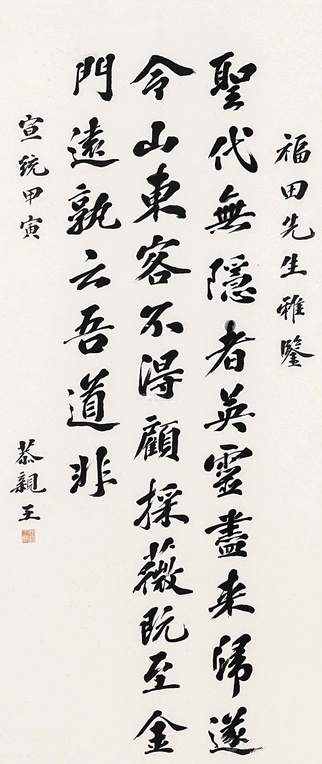 福田先生雅鑒
聖代無隱者英靈盡來歸遂
令山東客不得顧採薇既至金
門遠孰云吾道非
宣統甲寅
恭親王